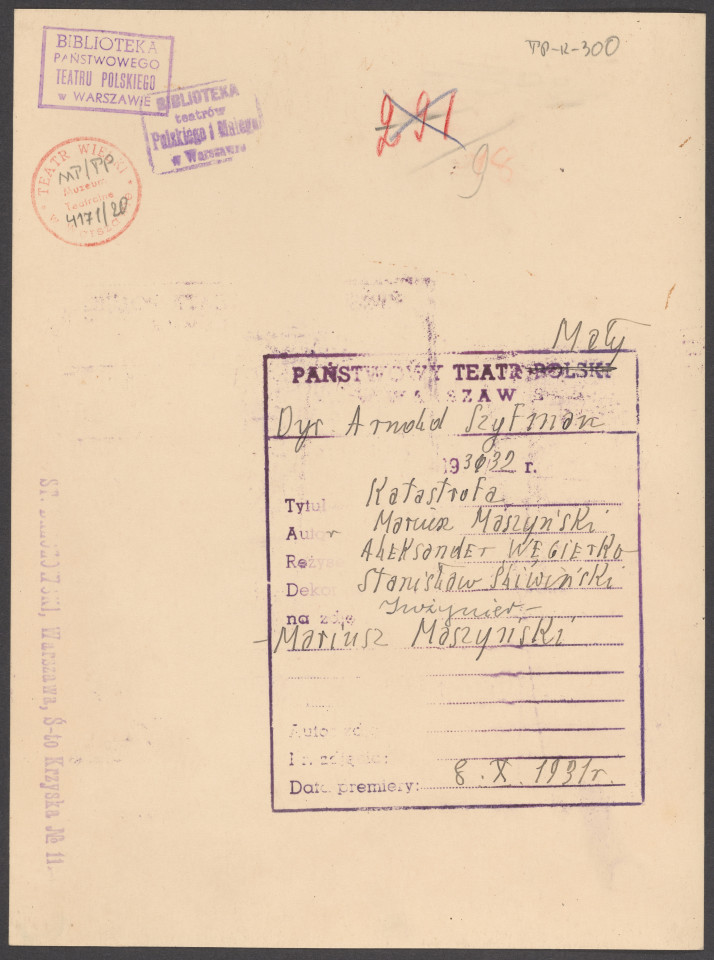 TP-R-300
BIBLIOTEKA
PAŃSTWOWEGO
TEATRU POLSKIEGO
w WARSZAWIE
BIBLIOTEKA
teatrów
Polskiego i Małego
w Warszawie
291
98
9
TEATR WIELKI
MP/TP
Muzeum
Teatralne
4171/20
Mały
PAŃSTWOWY TEATR POLSKI
W WARSZAWIE
Dyr Arnold Szyfman
1931/32 r.
Tytuł Katastrofa
Autor Mariusz Maszyński
Reżys ALEKSANDER WĘGIERKO
Dekor Stanisław Śliwiński
na zdję Inżynier –
– Mariusz Maszyński
Autor zdj
Nr. zdjęcia:
Data premiery: 8. X. 1931 r.
Warszawa, Ś-to Krzyska № 11.